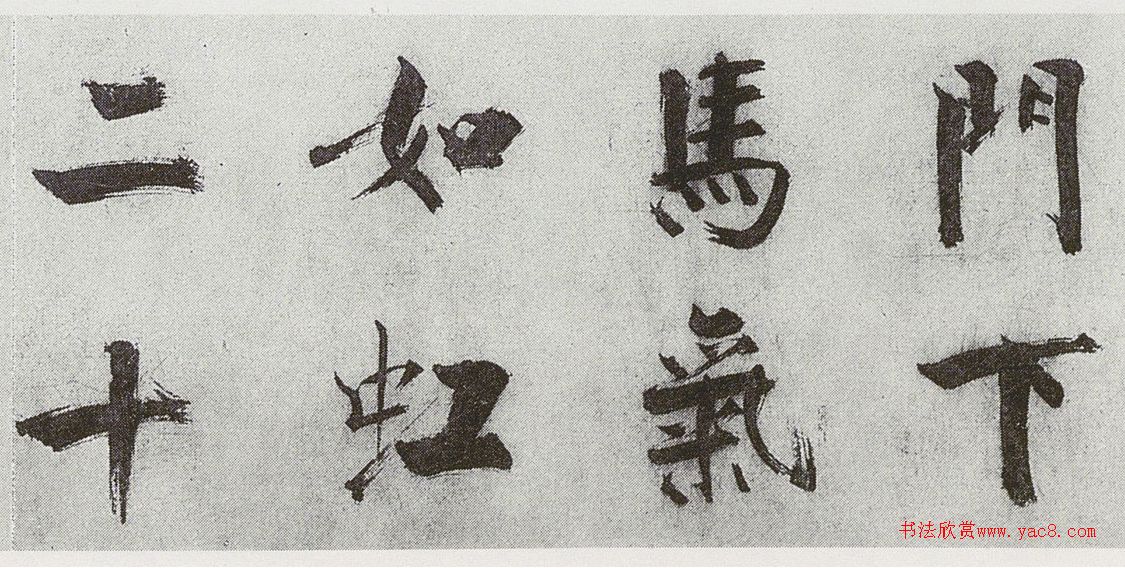 門下
馬氣
如虹
二十
书法欣赏www.yac8.com